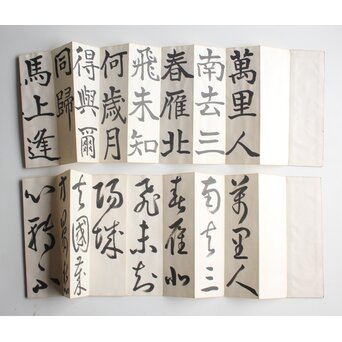 萬里人
南去三
春雁北
飛未知
何歲月
得與爾
同歸
馬上逢
萬里人
南去三
春雁北
飛未知
陽城
去國
心轉不